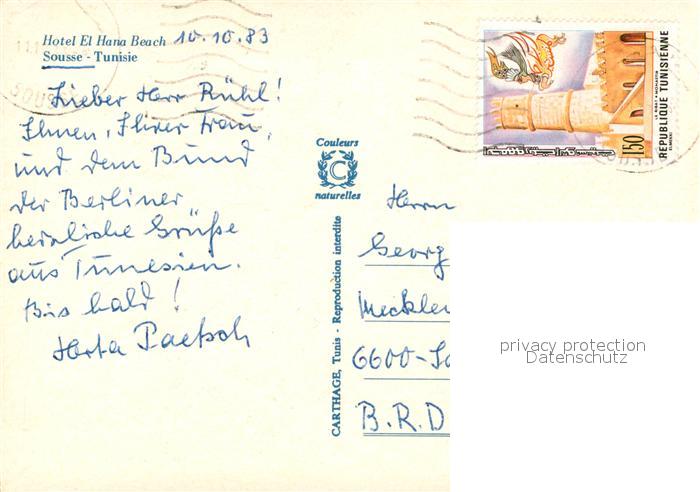 Hotel El Hana Beach 10.10.83
Sousse - Tunisie
Lieber Herr Rühl!
Ihnen, Ihrer Frau,
und dem Bund
der Berliner
herzliche Grüße
aus Tunesien.
Bis bald!
Herta Paetsch
Couleurs
C
naturelles
CARTHAGE, Tunis - Reproduction interdite
REPUBLIQUE TUNISIENNE
LE RIBAT - MONASTIR
150
Herrn
Georg
Mecklen
6600-Sa
B.R.D
privacy protection
Datenschutz